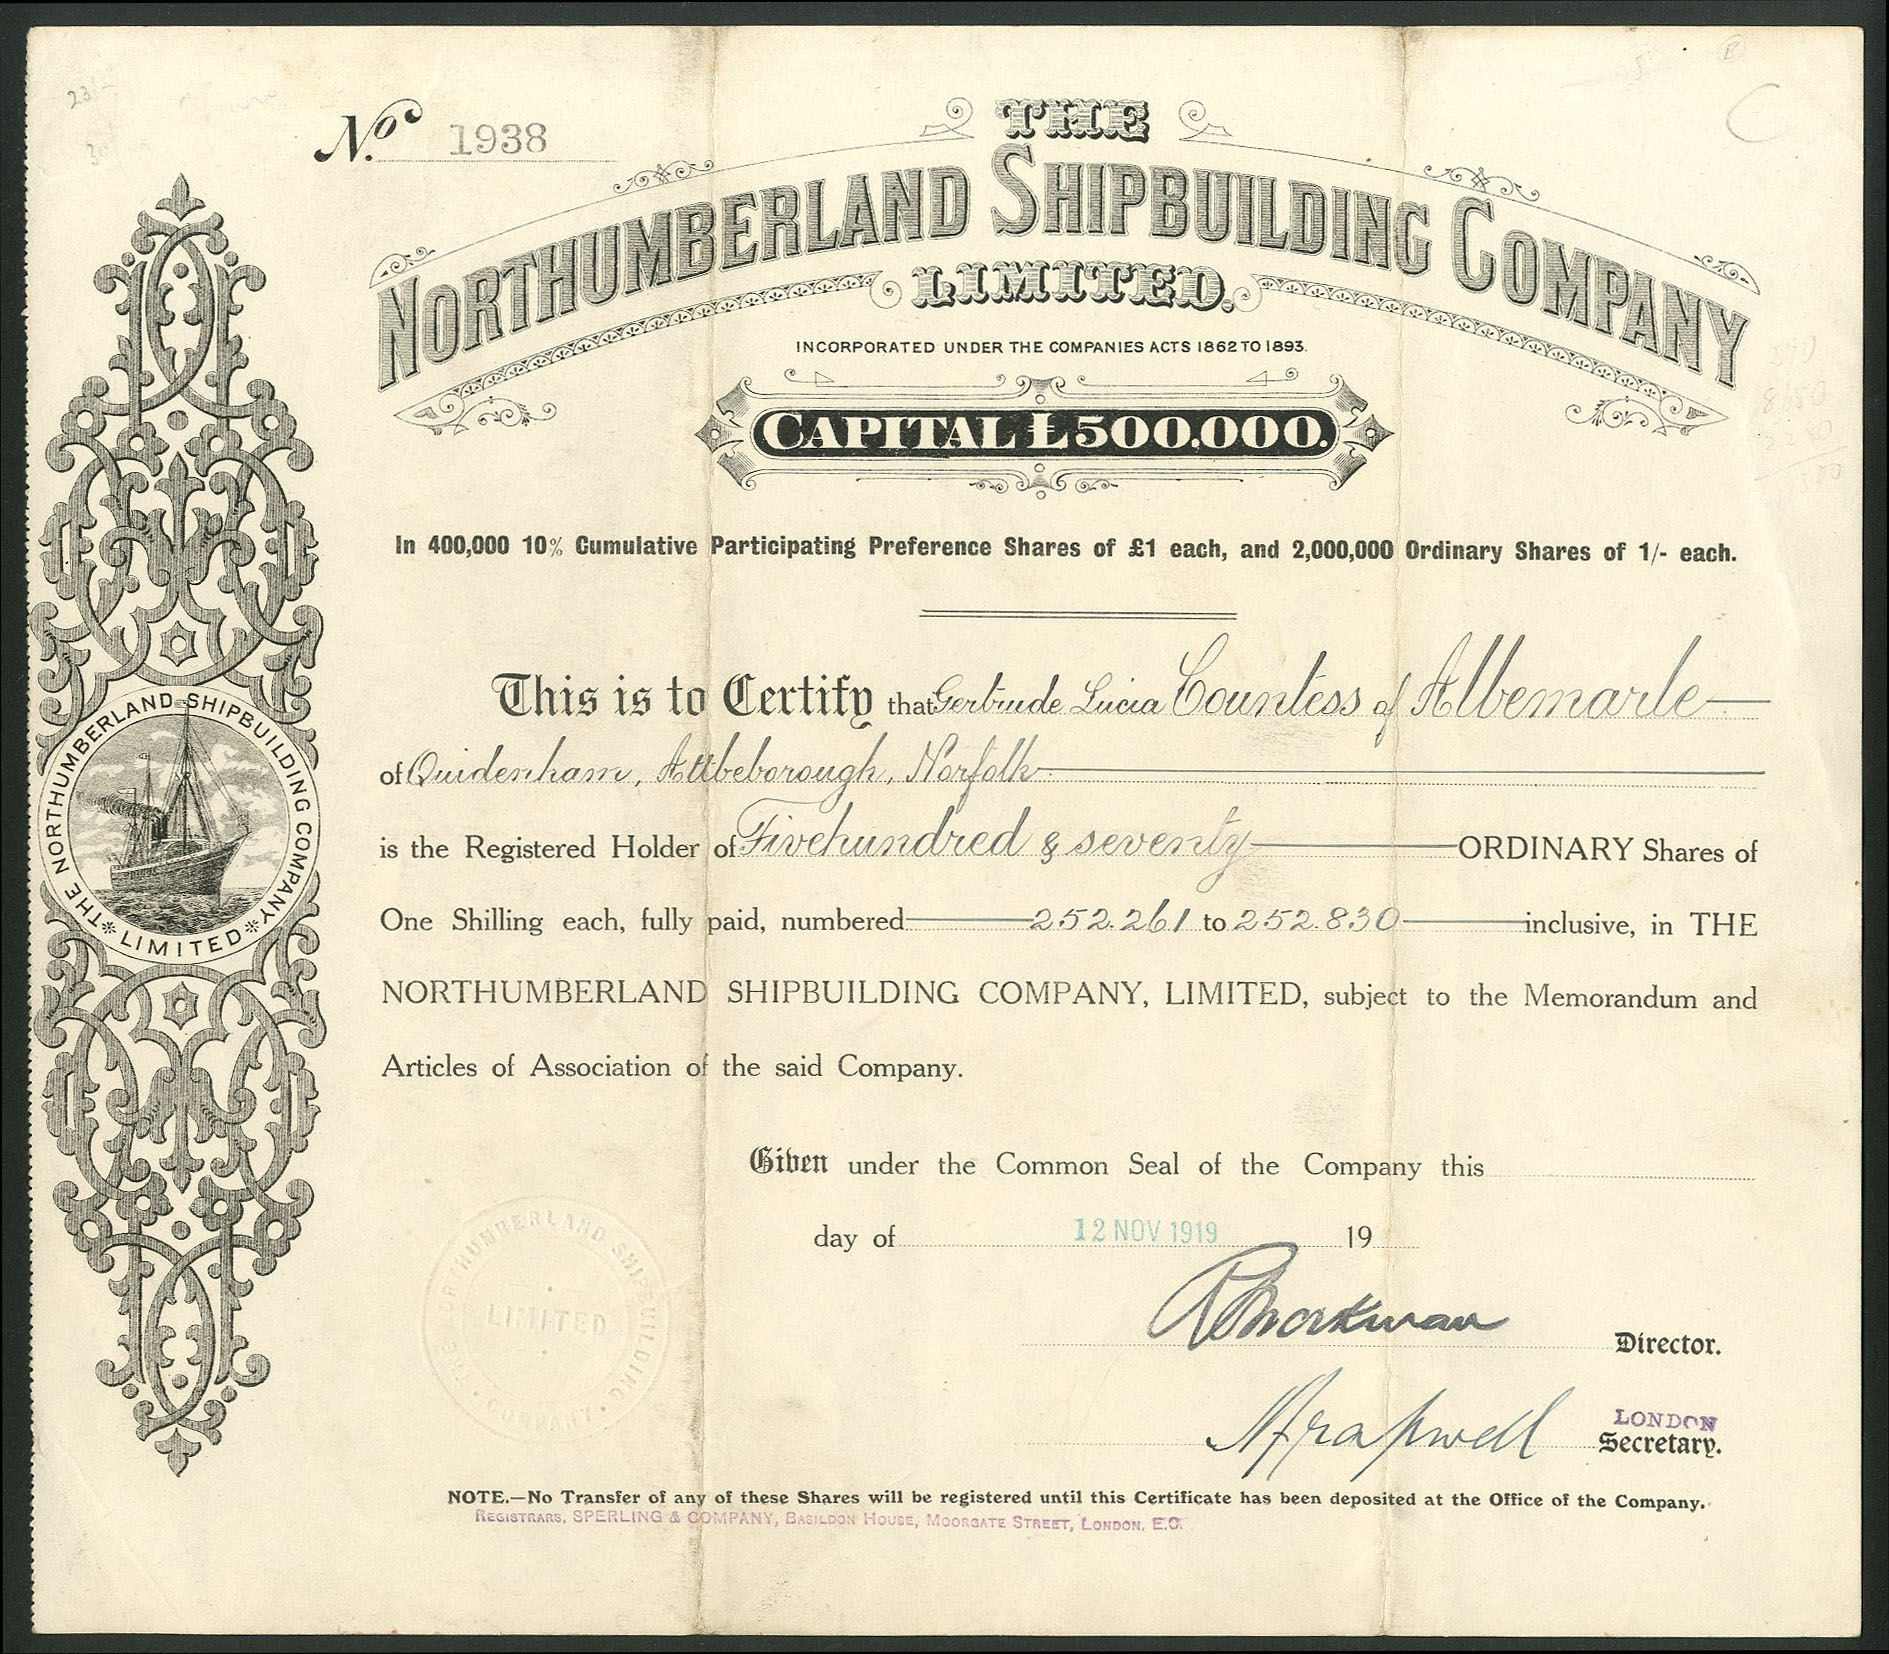 No. 1938
THE
NORTHUMBERLAND SHIPBUILDING COMPANY
LIMITED.
INCORPORATED UNDER THE COMPANIES ACTS 1862 TO 1893.
CAPITAL £500,000.
In 400,000 10% Cumulative Participating Preference Shares of £1 each, and 2,000,000 Ordinary Shares of 1/- each.
This is to Certify that Gertrude Lucia Countess of Albemarle
of Quidenham, Attbeborough, Norfolk
is the Registered Holder of Fivehundred & seventy ORDINARY Shares of
One Shilling each, fully paid, numbered 252.261 to 252.830 inclusive, in THE
NORTHUMBERLAND SHIPBUILDING COMPANY, LIMITED, subject to the Memorandum and
Articles of Association of the said Company.
Given under the Common Seal of the Company this
day of 12 NOV 1919 19
Director.
LONDON
Secretary.
NOTE.—No Transfer of any of these Shares will be registered until this Certificate has been deposited at the Office of the Company.
REGISTRARS, SPERLING & COMPANY, BASILDON HOUSE, MOORGATE STREET, LONDON, E.C.
THE NORTHUMBERLAND SHIPBUILDING COMPANY
LIMITED
THE NORTHUMBERLAND SHIPBUILDING
COMPANY
LIMITED